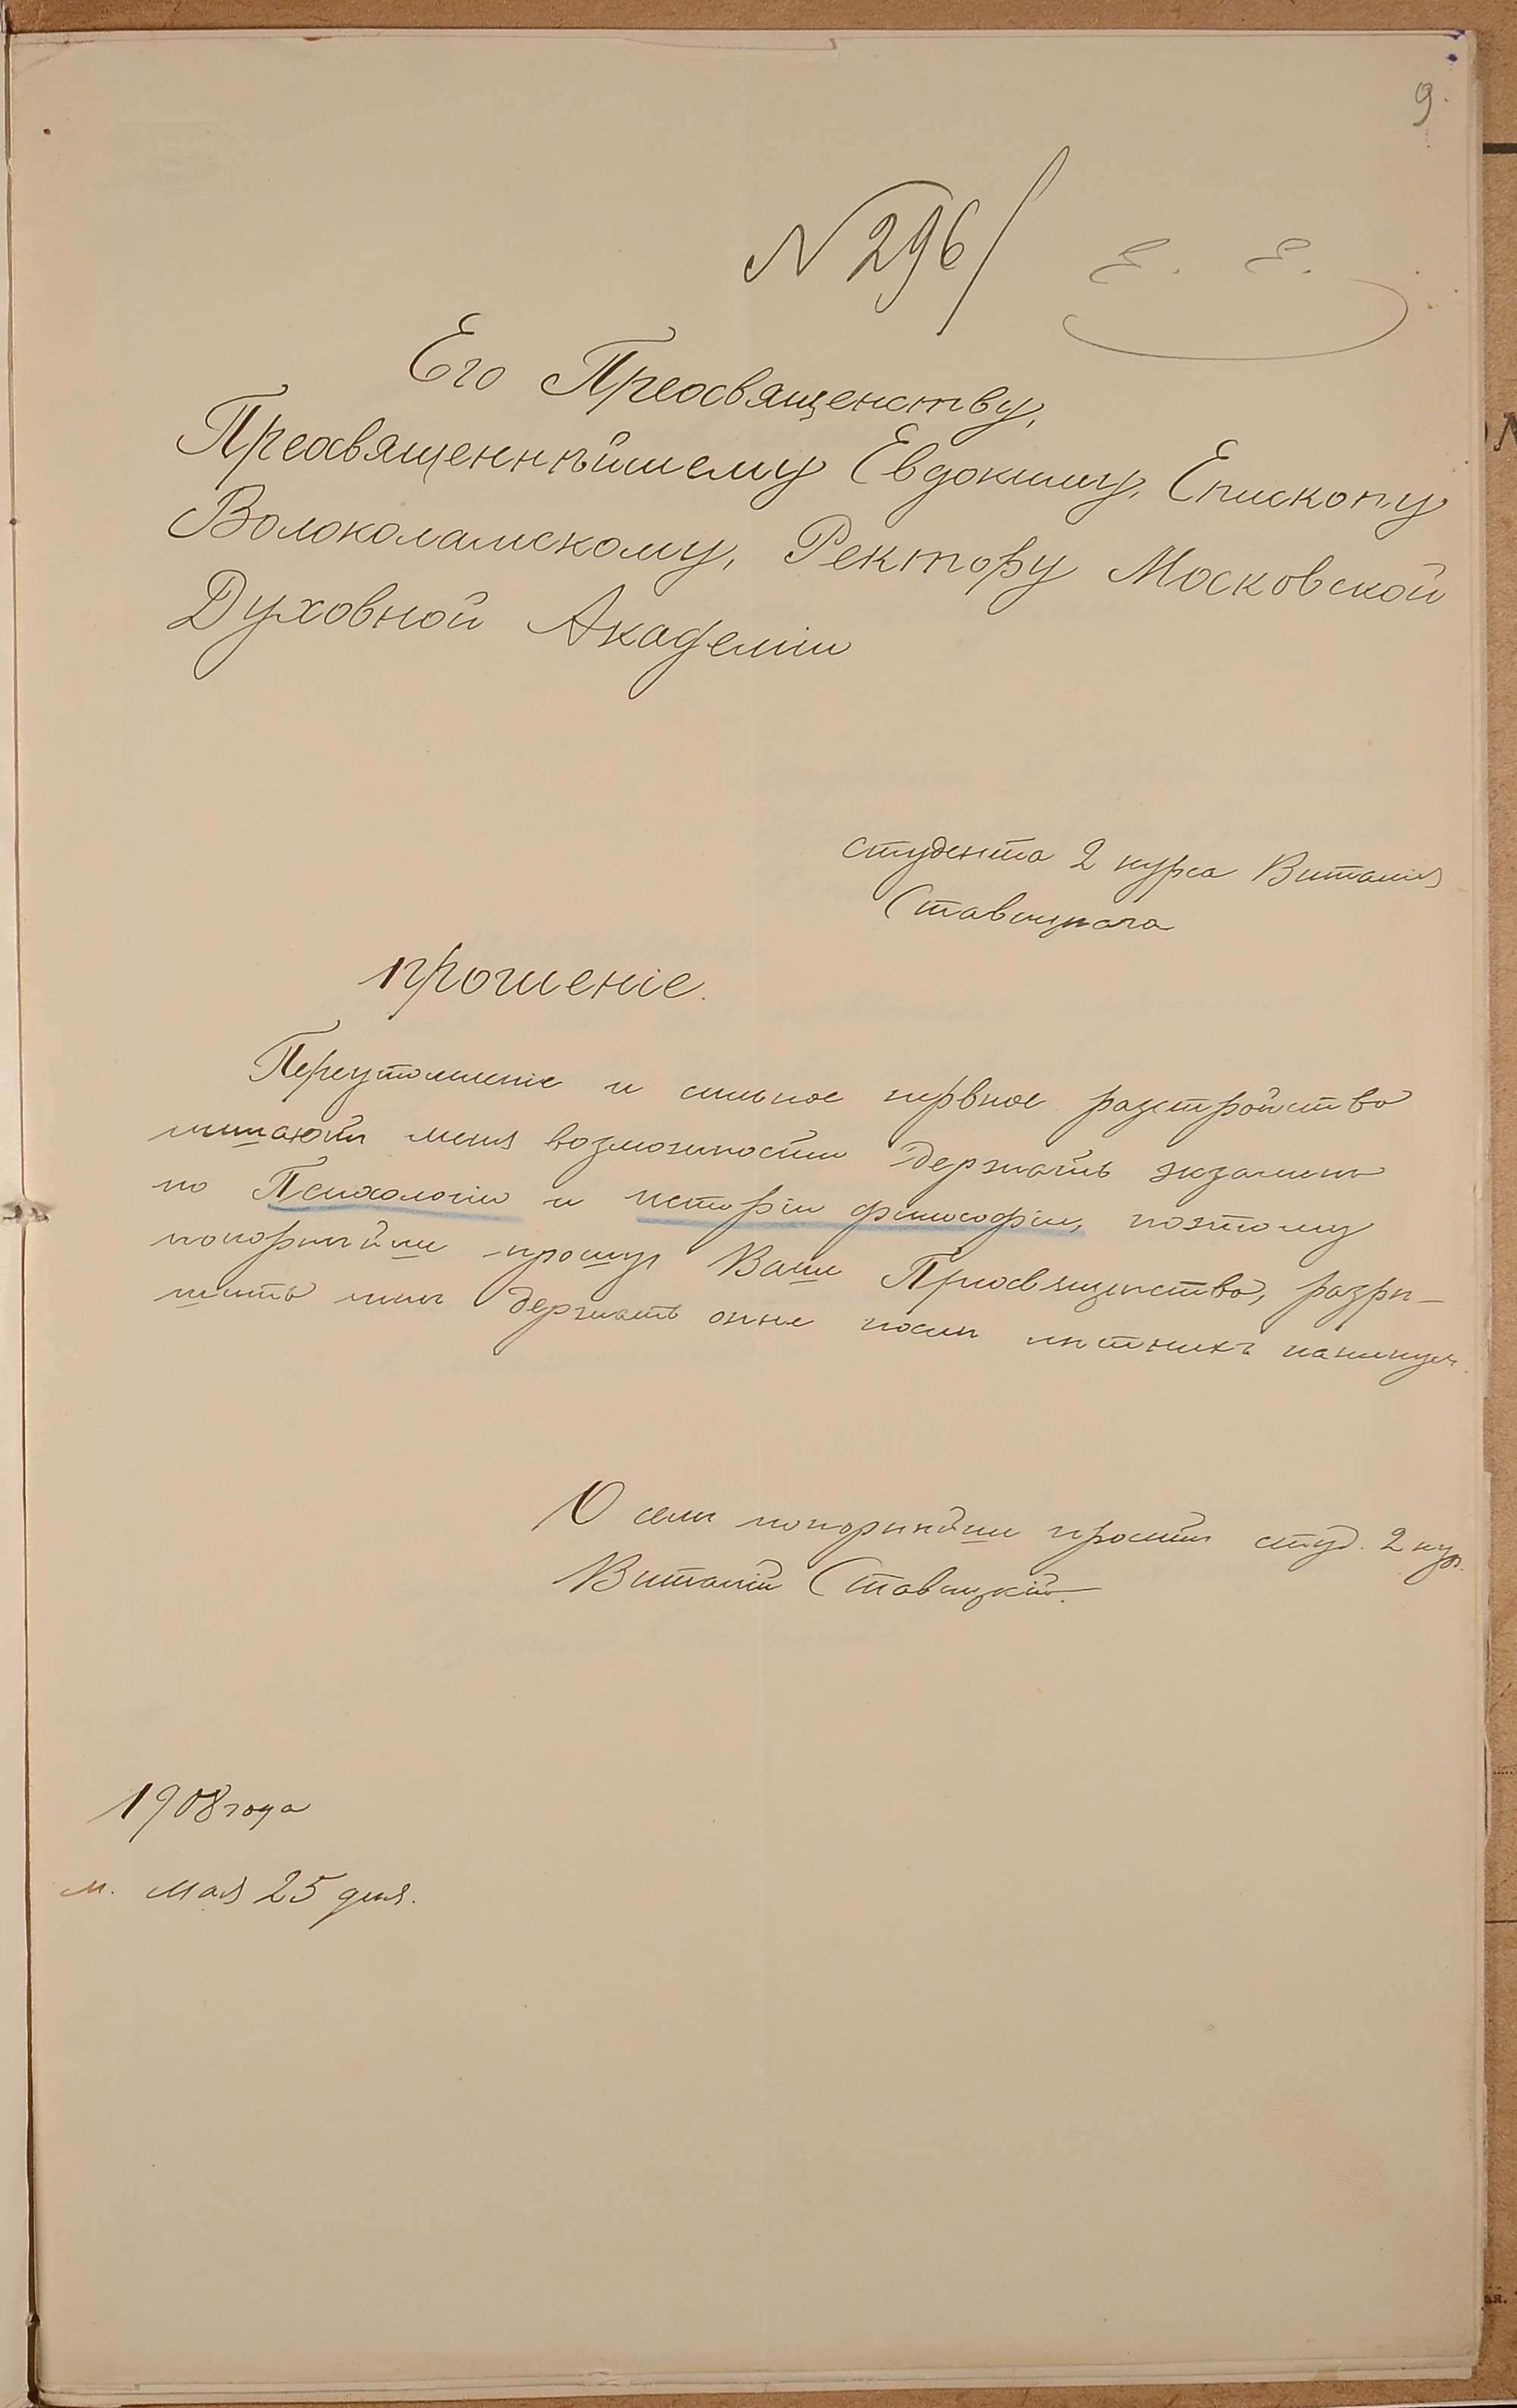 9.
№ 296/ Е. Е.
Его Преосвященству,
Преосвященнѣйшему Евдокиму, Епископу
Волоколамскому, Ректору Московской
Духовной Академіи
студента 2 курса Виталія
Ставицкаго
прошеніе.
Переутомленіе и сильное нервное разстройство
лишаютъ меня возможности держать экзамены
по Психологіи и исторіи философіи, поэтому
покорнѣйше прошу Ваше Преосвященство, разрѣ-
шить мнѣ держать оные послѣ лѣтнихъ каникулъ.
О семъ покорнѣйше проситъ студ. 2 кур.
Виталій Ставицкій.
1908 года
м. мая 25 дня.